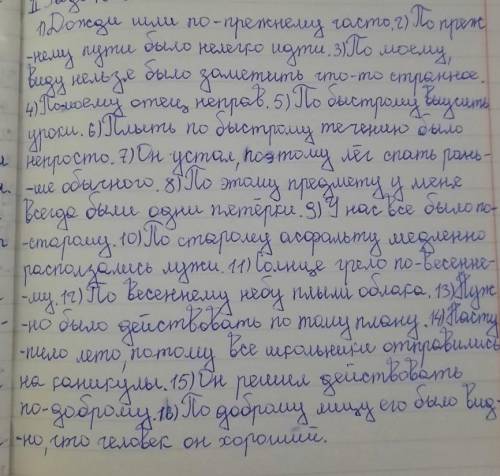 1) Дожди шли по-прежнему часто. 2) По преж
-нему пути было нелегко идти. 3) По моему,
виду нельзя было заметить что-то странное.
4) По моему отец неправ. 5) По быстрому выучить
уроки. 6) Плыть по быстрому течению было
непросто. 7) Он устал, поэтому лёг спать рань-
-ше обычного. 8) По этому предмету у меня
всегда были одни пятёрки. 9) У нас все было по-
-старому. 10) По старому асфальту медленно
расползались лужи. 11) Солнце грело по-весенне-
-му. 12) По весеннему небу плыли облака. 13) Нуж
-но было действовать по тому плану. 14) Насту
-пило лето, потому все школьники отправились
на каникулы. 15) Он решил действовать
по-доброму. 16) По доброму лицу его было вид-
-но, что человек он хороший.